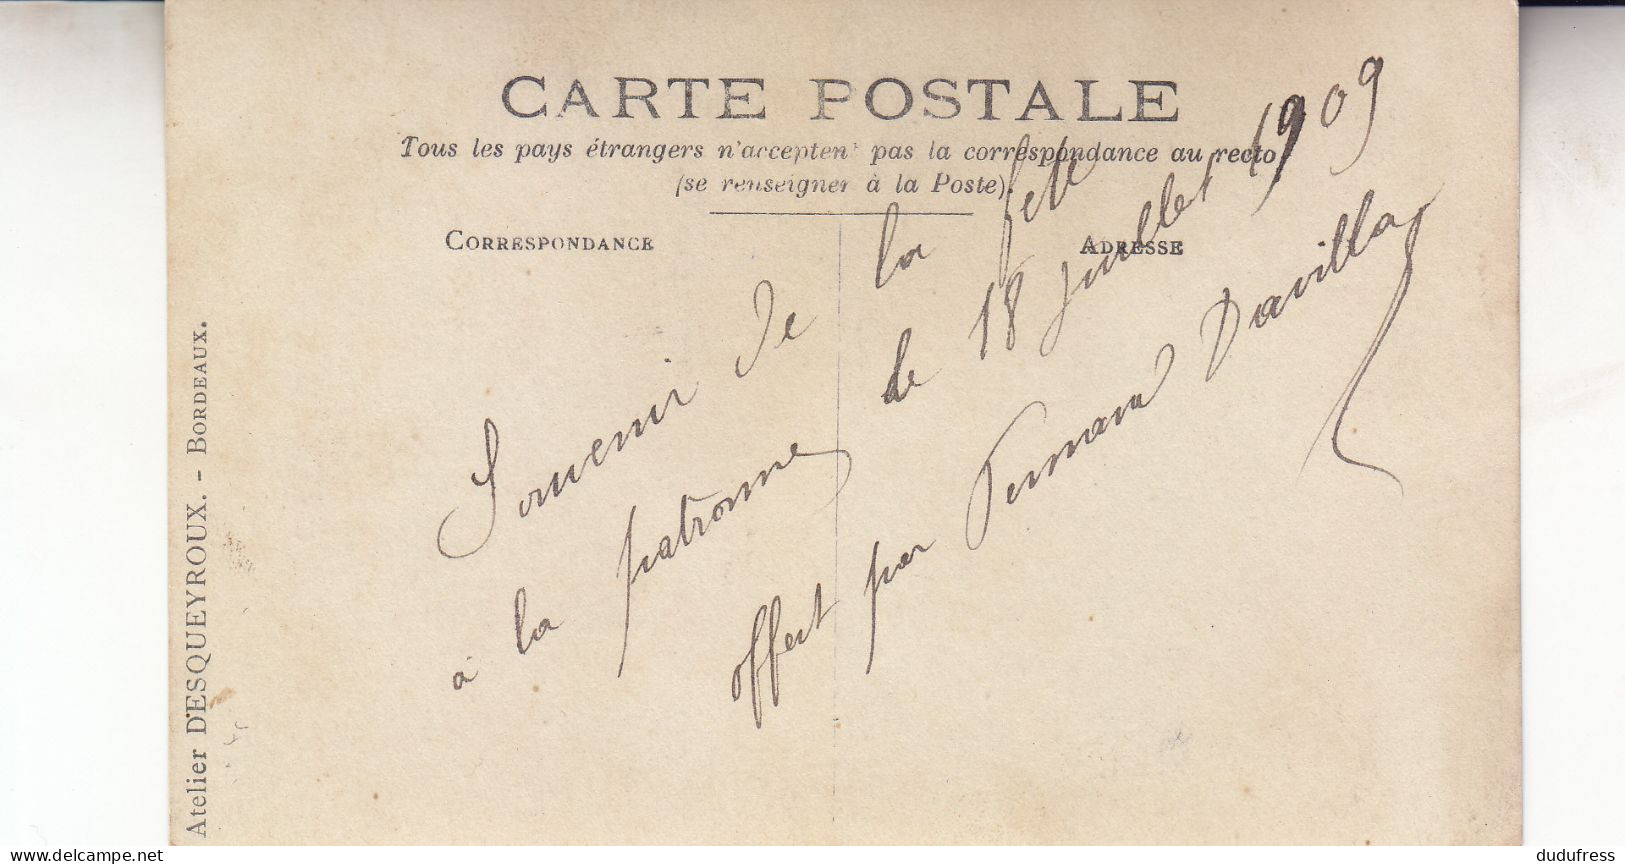 CARTE POSTALE
Tous les pays étrangers n'acceptent pas la correspondance au recto
(se renseigner à la Poste).
CORRESPONDANCE
ADRESSE
Souvenir de la fete
à la patronne de 18 Juillet 1909
offert par Fernand Davilla
Atelier DESQUEYROUX. - BORDEAUX.
delcampe.net
dudufress